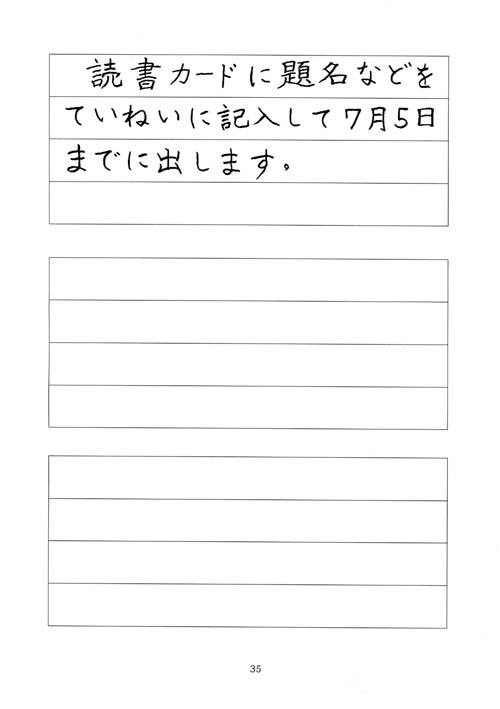 読書カードに題名などを
ていねいに記入して7月5日
までに出します。
35